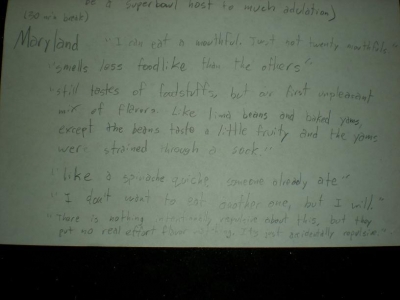 be a superbowl host to much adulation)
(30 min break)
Maryland "I can eat a mouthful. Just not twenty mouthfuls"
"smells less foodlike than the others"
"still tastes of foodstuffs, but our first unpleasant
mix of flavors. Like lima beans and baked yams,
except the beans taste a little fruity and the yams
were strained through a sock"
"like a spinache quiche someone already ate"
"I don't want to eat another one, but I will."
"There is nothing intentionally repulsive about this, but they
put no real effort flavor It's just accidentally repulsive."